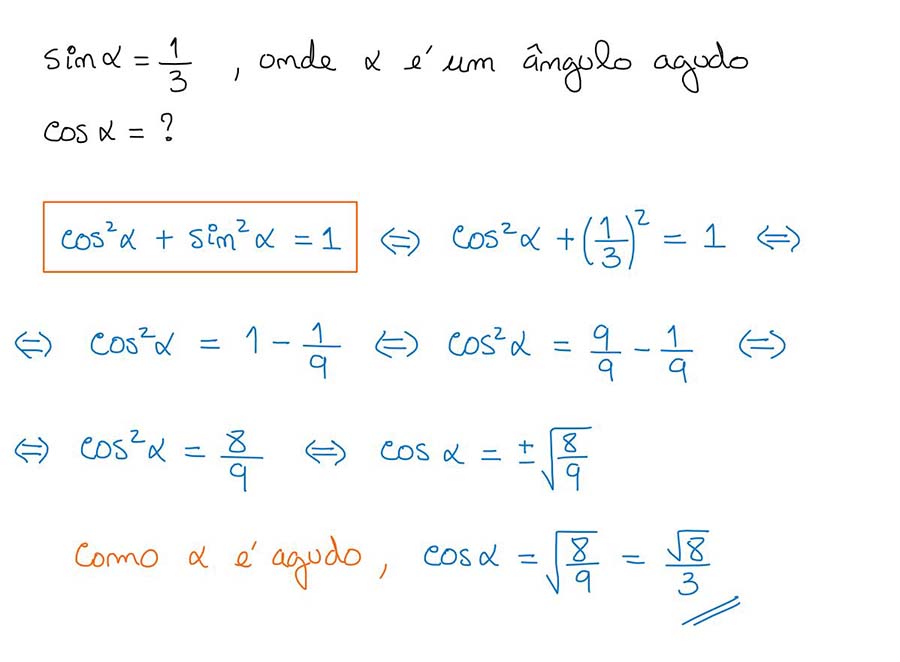 sin α = 1/3 , onde α é um ângulo agudo
cos α = ?
cos²α + sin²α = 1 ⇔ cos²α + (1/3)² = 1 ⇔
⇔ cos²α = 1 − 1/9 ⇔ cos²α = 9/9 − 1/9 ⇔
⇔ cos²α = 8/9 ⇔ cos α = ±√(8/9)
Como α é agudo, cos α = √(8/9) = √8/3